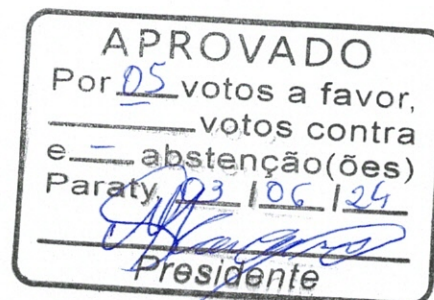 APROVADO
Por 05 votos a favor,
votos contra
e — abstenção(ões)
Paraty, 03 / 06 / 24
Presidente